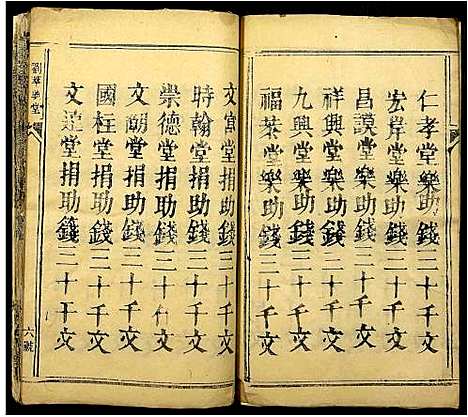 仁孝堂樂助錢二十千文
宏岸堂樂助錢二十千文
昌說堂樂助錢二十千文
祥興堂樂助錢二十千文
九興堂樂助錢二十千文
福茶堂樂助錢二十千文
文宮堂捐助錢二十千文
時翰堂捐助錢二十千文
崇德堂捐助錢二十千文
文朗堂捐助錢二十千文
國柱堂捐助錢二十千文
文達堂捐助錢二十千文
六號